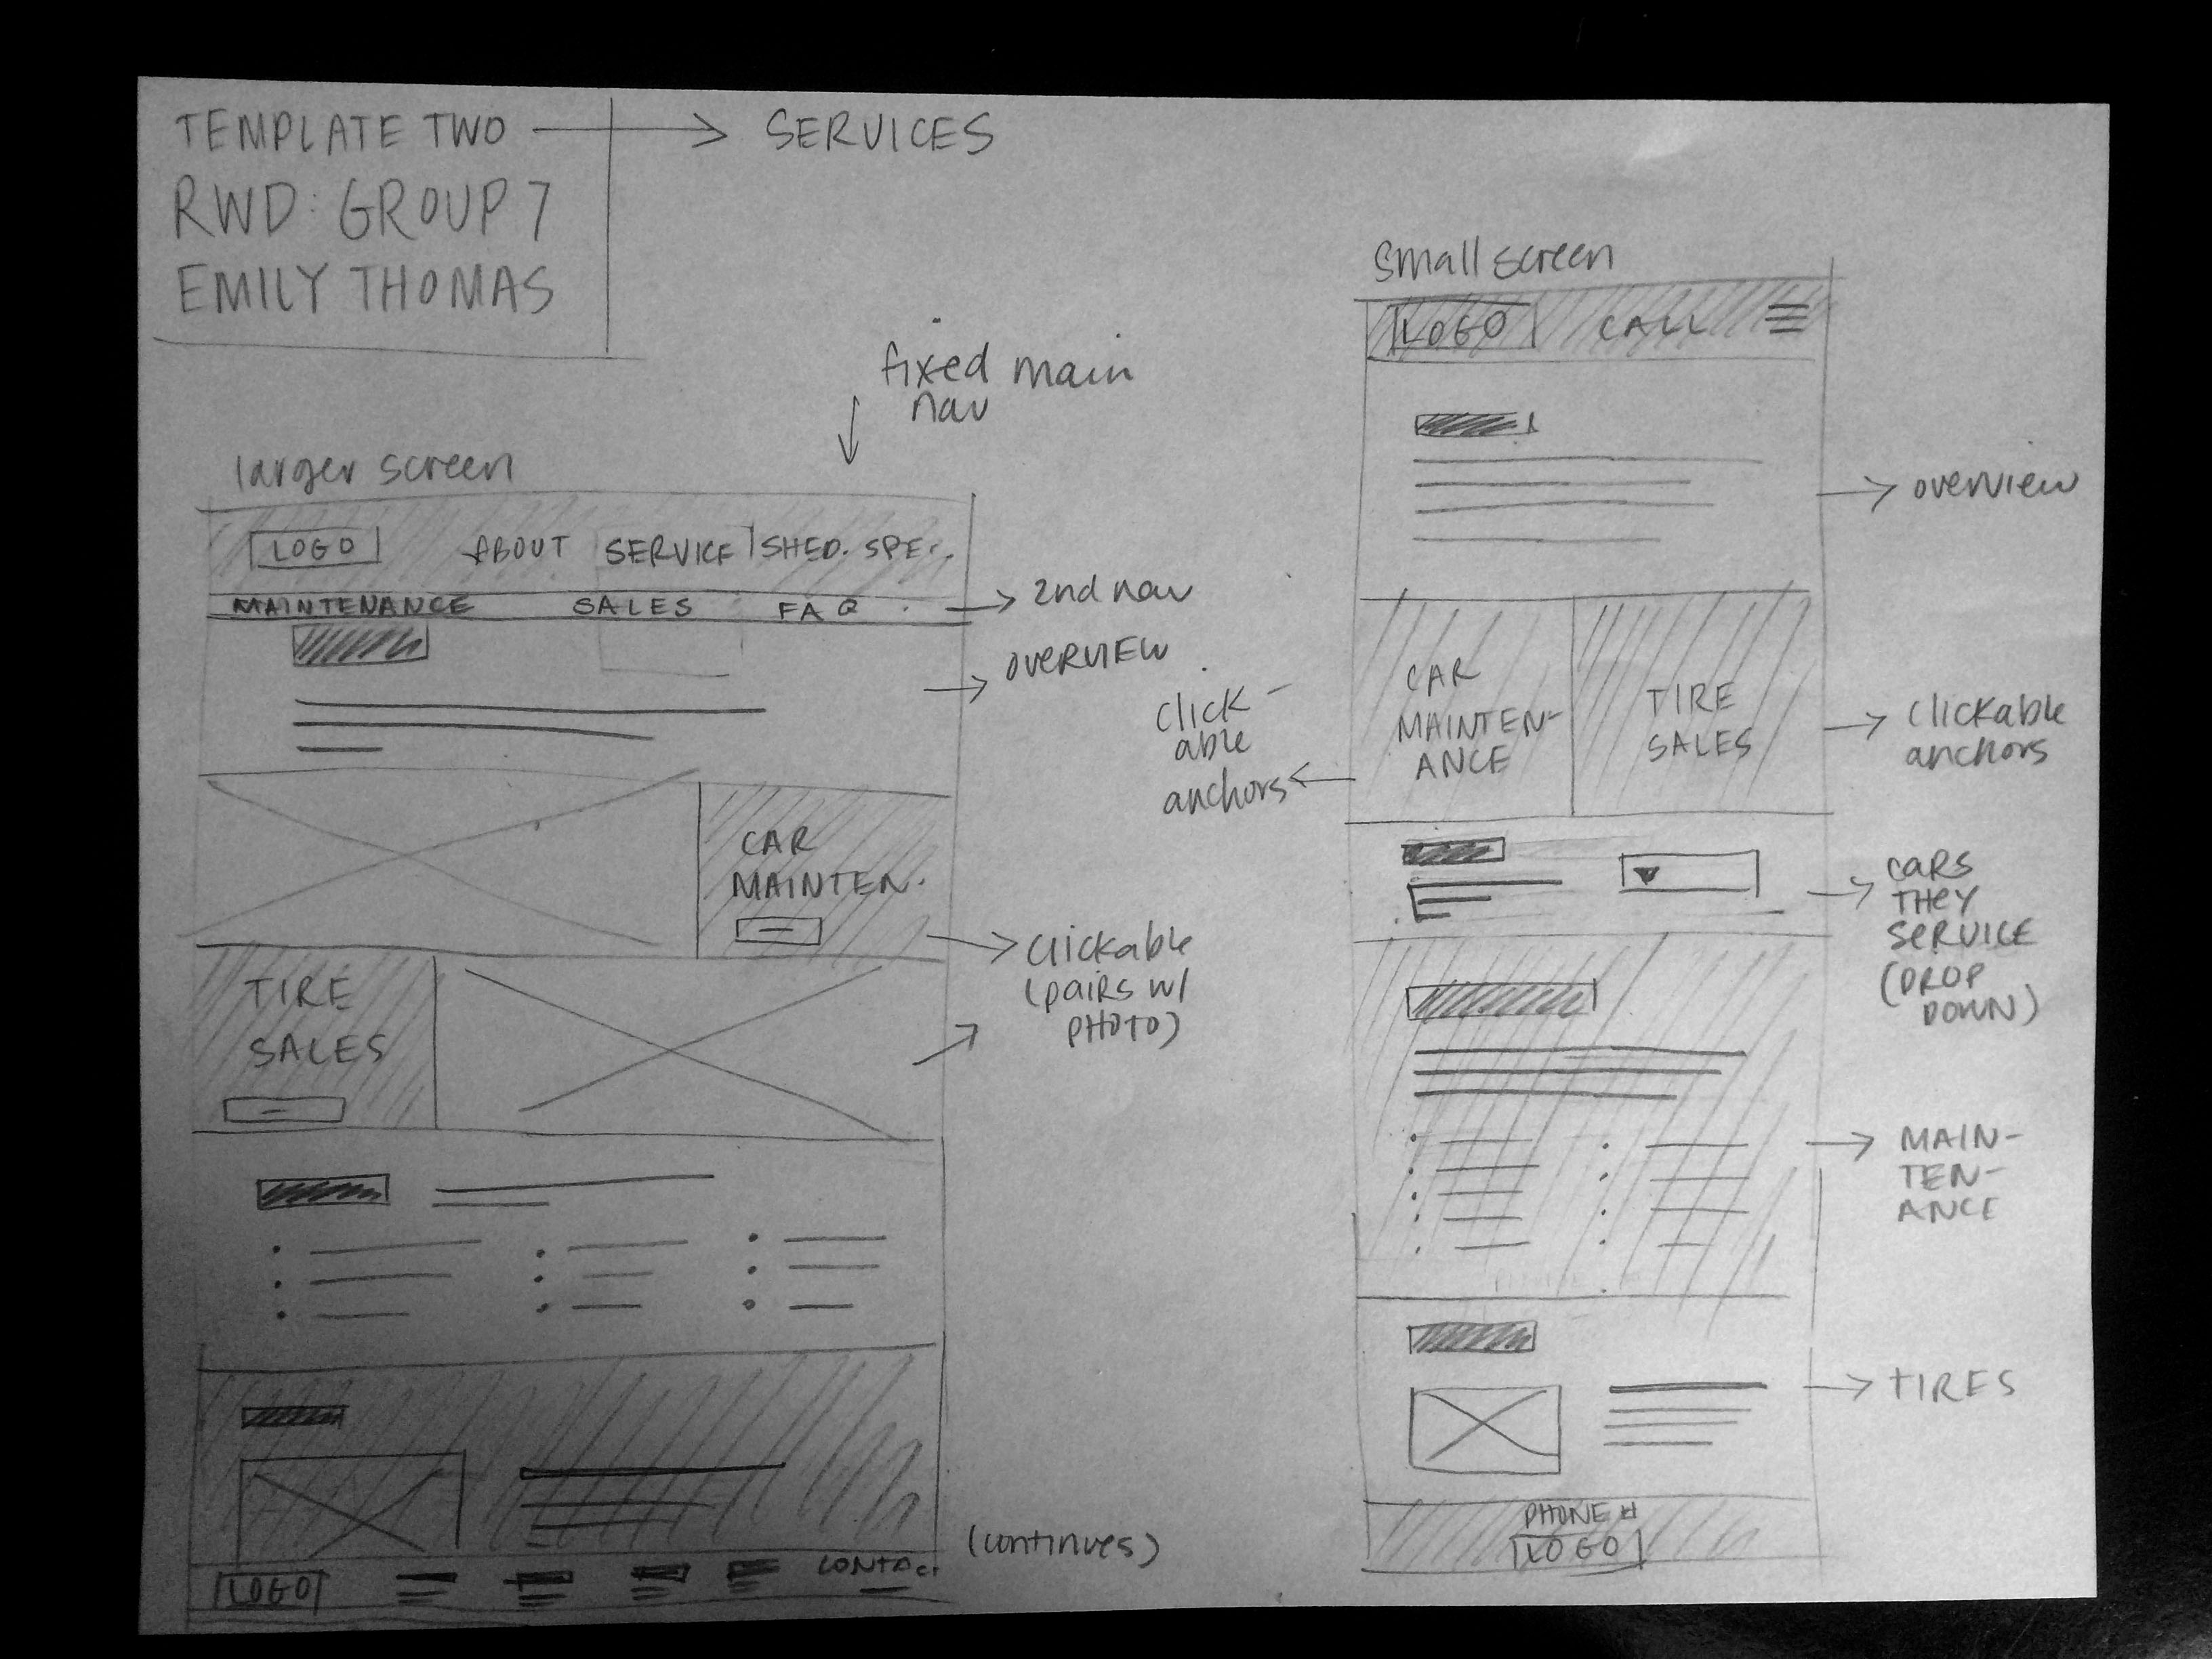 TEMPLATE TWO → SERVICES
RWD: GROUP 7
EMILY THOMAS
fixed main
nav
larger screen
LOGO ABOUT SERVICE SHED. SPEC.
MAINTENANCE SALES FAQ
2nd nav
OVERVIEW
CAR
MAINTEN.
clickable
(pairs w/
PHOTO)
TIRE
SALES
(continues)
LOGO CONTAC
small screen
LOGO CALL
overview
CAR
MAINTEN-
ANCE
TIRE
SALES
click-
able
anchors
clickable
anchors
CARS
THEY
SERVICE
(DROP
DOWN)
MAIN-
TEN-
ANCE
TIRES
PHONE #
LOGO